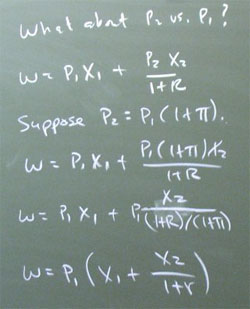 What about P₂ vs. P₁?
W = P₁X₁ + P₂X₂/(1+R)
Suppose P₂ = P₁(1+π).
W = P₁X₁ + P₁(1+π)X₂/(1+R)
W = P₁X₁ + P₁ X₂/((1+R)/(1+π))
W = P₁(X₁ + X₂/(1+r))